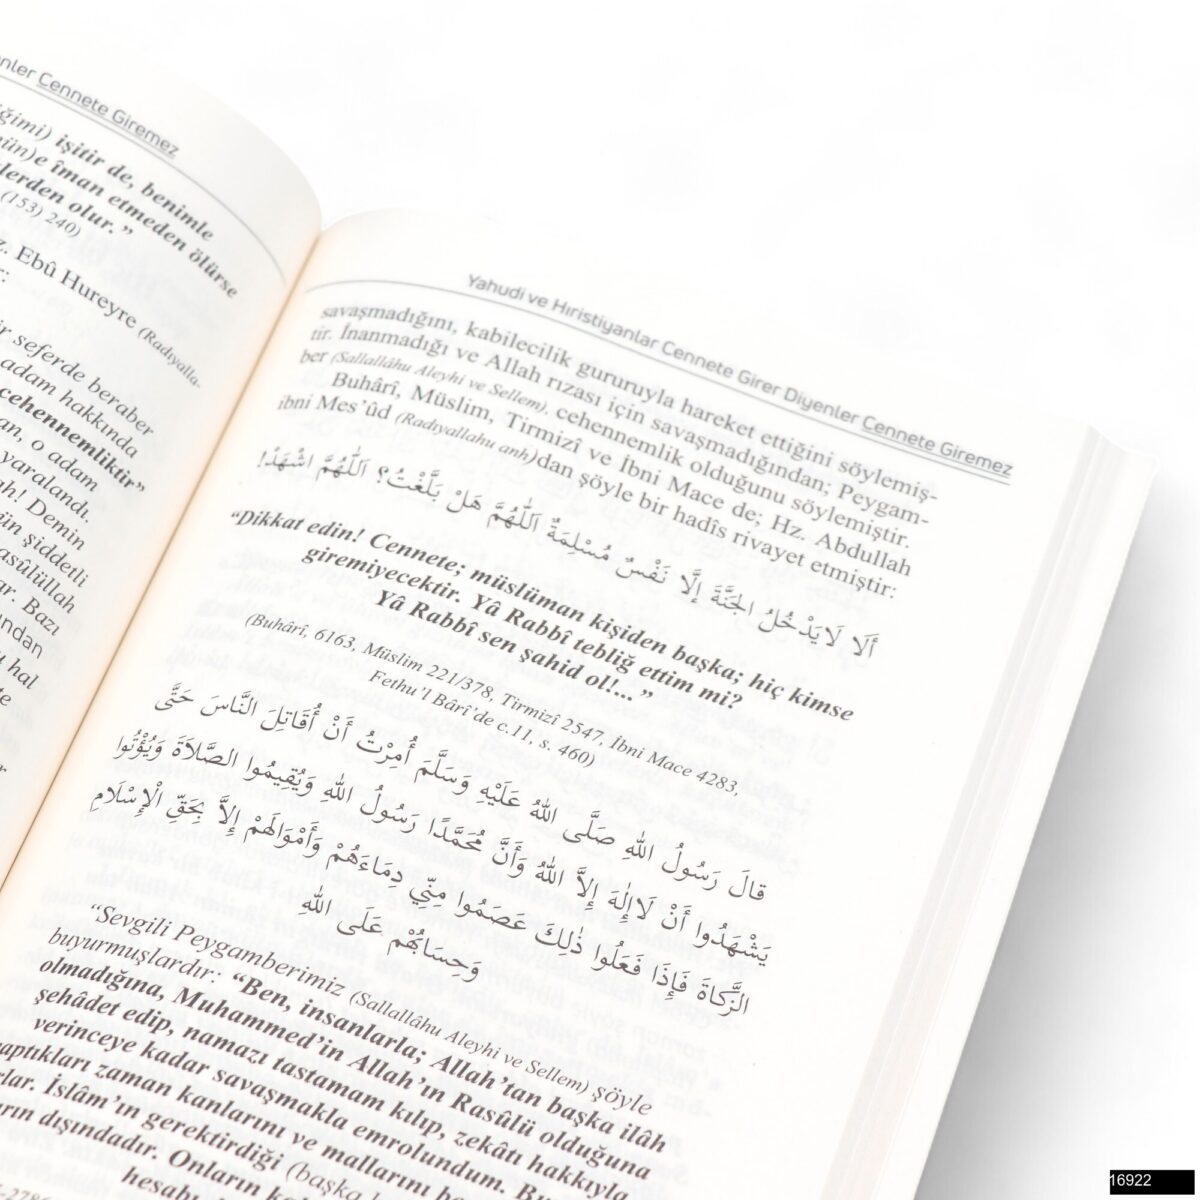 Cennete Giremez
işitir de, benimle
îman etmeden ölürse
olur.”
(153) 240)
Ebû Hureyre (Radıyalla-
seferde beraber
adam hakkında
cehennemliktir”
o adam
yaralandı.
Demin
şiddetli
Bazı
hal
Yahudi ve Hıristiyanlar Cennete Girer Diyenler Cennete Giremez
savaşmadığını, kabilecilik gururuyla hareket ettiğini söylemiş-
tir. İnanmadığı ve Allah rızası için savaşmadığından; Peygam-
ber (Sallallâhu Aleyhi ve Sellem), cehennemlik olduğunu söylemiştir.
Buhârî, Müslim, Tirmizî ve İbni Mace de; Hz. Abdullah
ibni Mes’ûd (Radıyallahu anh)dan şöyle bir hadîs rivayet etmiştir:
أَلَا لَا يَدْخُلُ الْجَنَّةَ إِلَّا نَفْسٌ مُسْلِمَةٌ اَللّٰهُمَّ هَلْ بَلَّغْتُ؟ اَللّٰهُمَّ اشْهَدْ!
“Dikkat edin! Cennete; müslüman kişiden başka; hiç kimse
giremiyecektir. Yâ Rabbî tebliğ ettim mi?
Yâ Rabbî sen şahid ol!...”
(Buhârî, 6163, Müslim 221/378, Tirmizî 2547, İbni Mace 4283,
Fethu’l Bârî’de c.11, s. 460)
قَالَ رَسُولُ اللهِ صَلَّى اللهُ عَلَيْهِ وَسَلَّمَ أُمِرْتُ أَنْ أُقَاتِلَ النَّاسَ حَتَّى
يَشْهَدُوا أَنْ لَا إِلٰهَ إِلَّا اللهُ وَأَنَّ مُحَمَّدًا رَسُولُ اللهِ وَيُقِيمُوا الصَّلَاةَ وَيُؤْتُوا
الزَّكَاةَ فَإِذَا فَعَلُوا ذٰلِكَ عَصَمُوا مِنِّي دِمَاءَهُمْ وَأَمْوَالَهُمْ إِلَّا بِحَقِّ الْإِسْلَامِ
وَحِسَابُهُمْ عَلَى اللهِ
“Sevgili Peygamberimiz (Sallallâhu Aleyhi ve Sellem) şöyle
buyurmuşlardır: “Ben, insanlarla; Allah’tan başka ilâh
olmadığına, Muhammed’in Allah’ın Rasûlü olduğuna
şehâdet edip, namazı tastamam kılıp, zekâtı hakkıyla
verinceye kadar savaşmakla emrolundum.
zaman kanlarını ve mallarını
İslâm’ın gerektirdiği (başka
dışındadır. Onların
16922